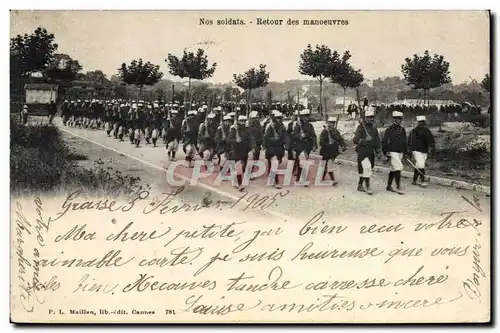 Nos soldats. - Retour des manoeuvres
CPARAMA
Grasse 3 Fevrier 1905
Ma chere petite, j'ai bien recu votre
aimable carte je suis heureuse que vous
alles bien, Recaves tendre caresse cheré
Louise amities sincere
Marguerite
P. L. Maillan, lib.-édit. Cannes 781